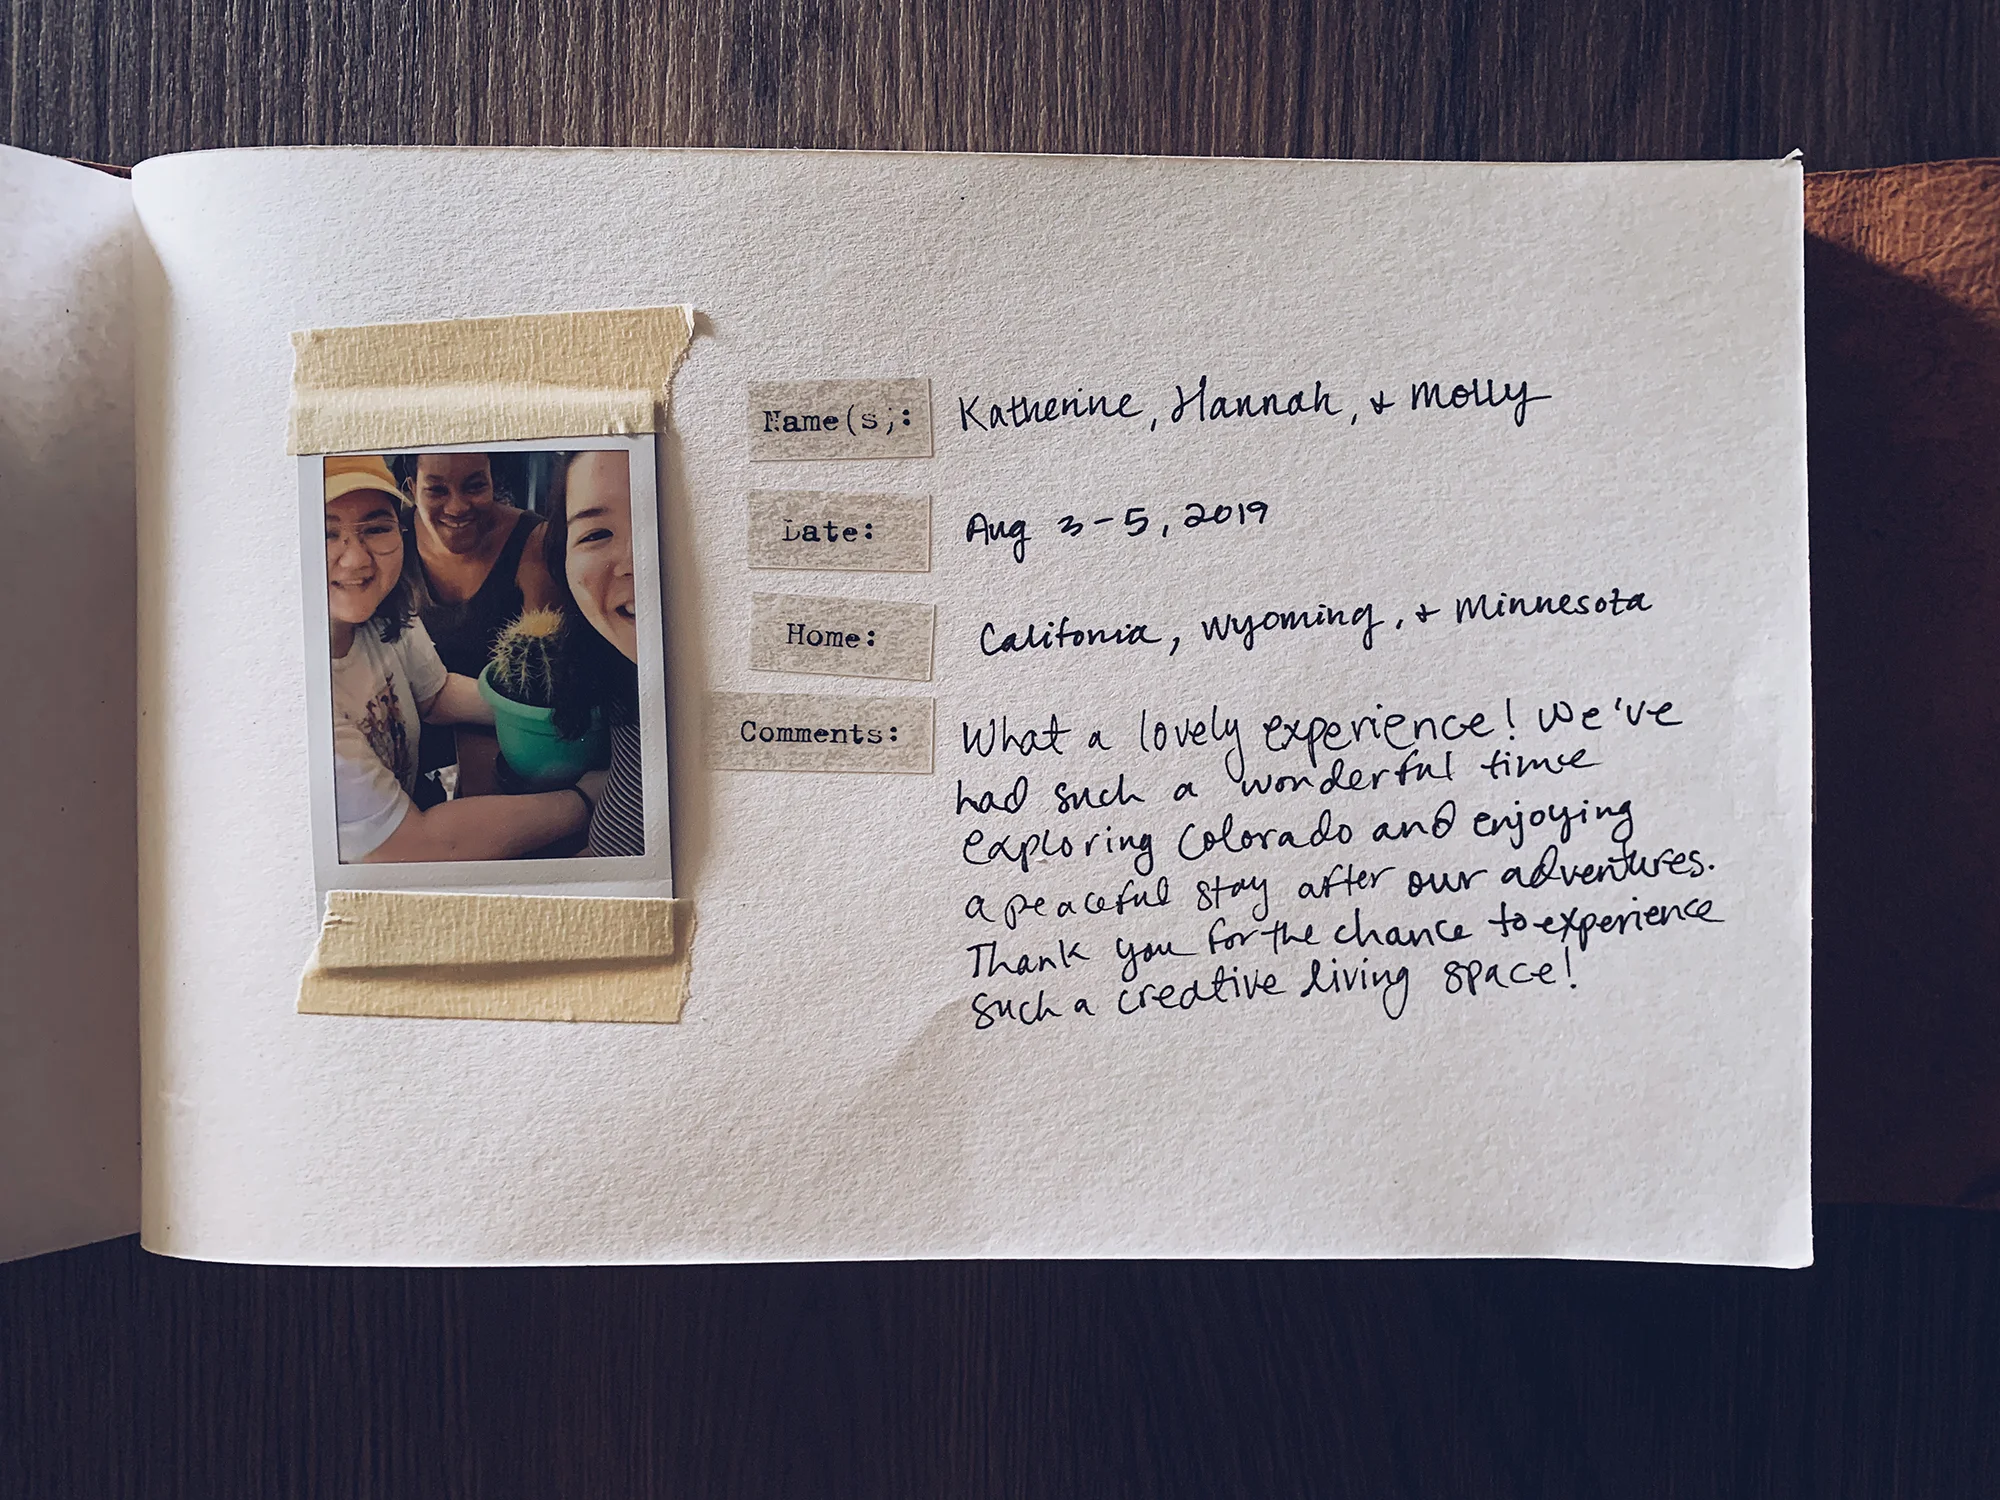 Name(s): Katherine, Hannah, & Molly
Date: Aug 3-5, 2019
Home: California, Wyoming, & Minnesota
Comments: What a lovely experience! We've
had such a wonderful time
exploring Colorado and enjoying
a peaceful stay after our adventures.
Thank you for the chance to experience
such a creative living space!